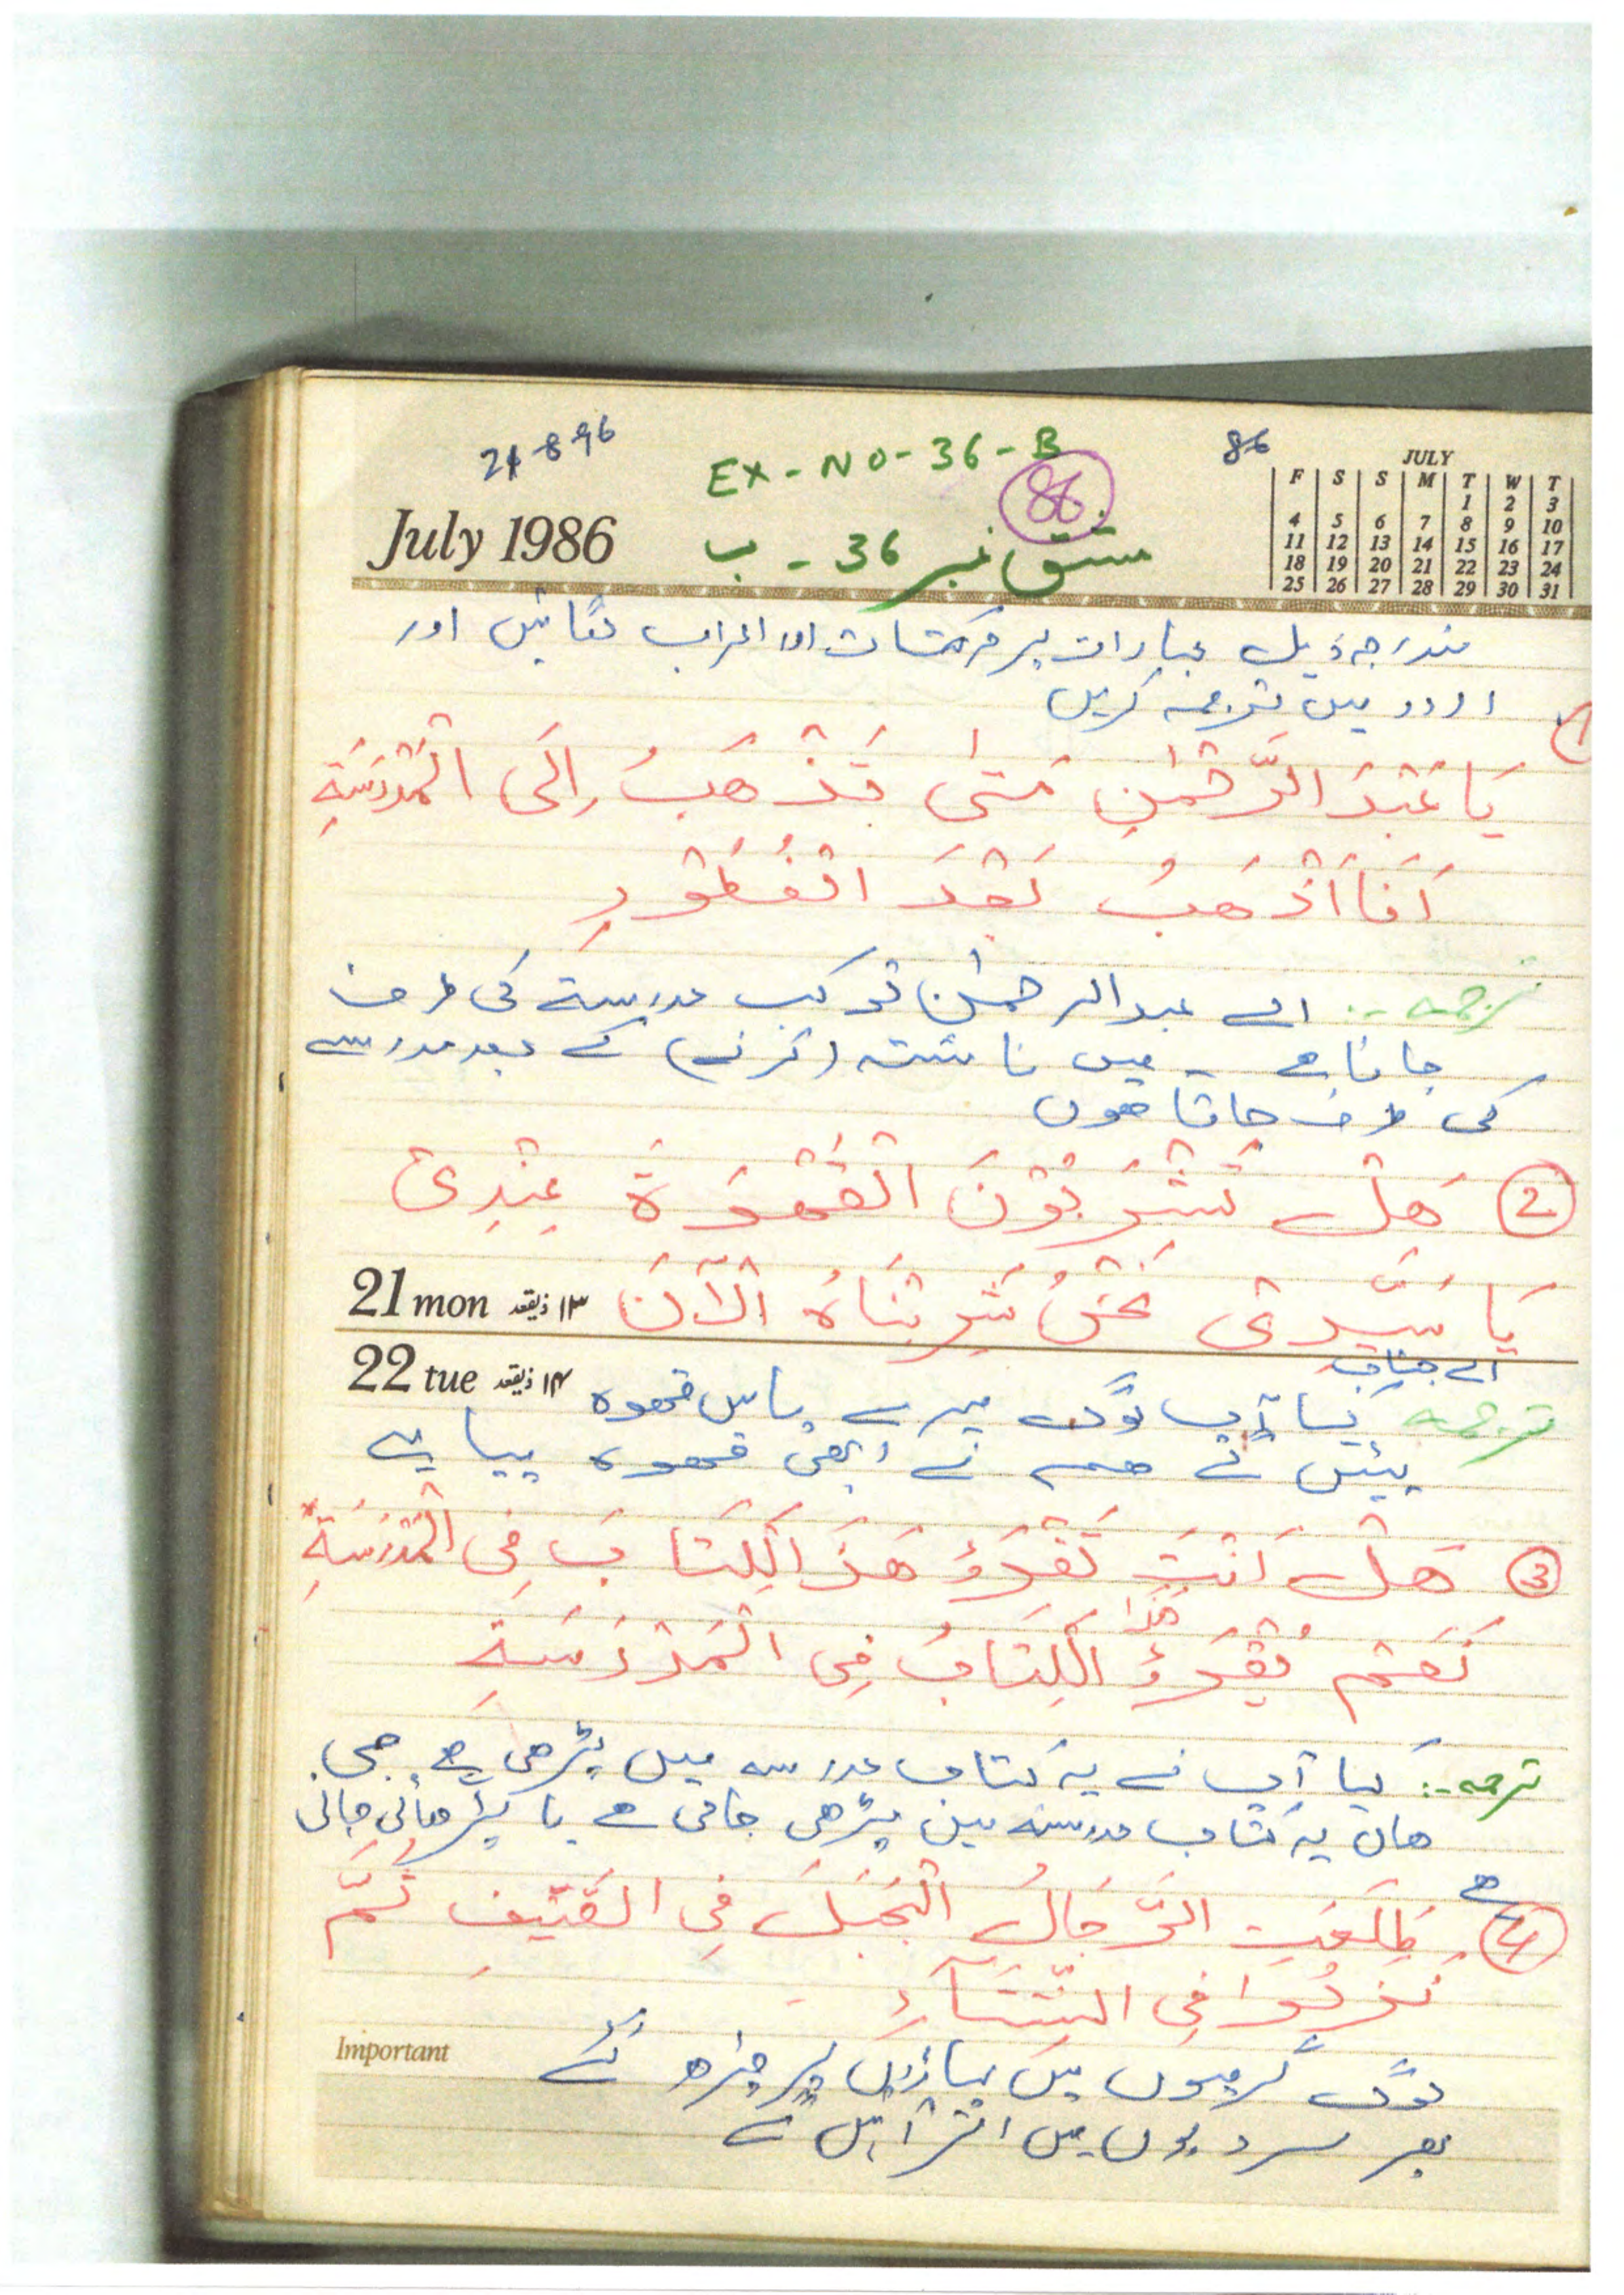 24-8-96
EX-NO-36-B
86
86
July 1986
مشق نمبر 36 - ب
JULY
F S S M T W T
1 2 3
4 5 6 7 8 9 10
11 12 13 14 15 16 17
18 19 20 21 22 23 24
25 26 27 28 29 30 31
مندرجہ ذیل عبارات پر حرکتات اور اعراب لگائیں اور
اردو میں ترجمہ کریں
1
يَا عَبْدَ الرَّحْمٰنِ مَتىٰ تَذْهَبُ اِلَى الْمَدْرَسَةِ
اَنَا اَذْهَبُ بَعْدَ الْفُطُوْرِ
ترجمہ -: اے عبدالرحمٰن تو کب مدرسۃ کی طرف
جاتا ھے - میں ناشتہ (کرنے) کے بعد مدرسے
کی طرف جاتا ھوں
2 هَلْ تَشْرَبُوْنَ الْقَهْوَةَ عِنْدِىْ
يَا سَيِّدِىْ نَحْنُ شَرِبْنَاهُ اَلْآنَ
21 mon ۱۳ ذیقعد
22 tue ۱۴ ذیقعد
اے جناب
ترجمہ کیا آپ لوگ میرے پاس قھوہ
پیئیں گے ھم نے ابھی قھوہ پیا ہے
3 هَلْ اَنْتَ تَقْرَؤُ هَذَ الْكِتَابَ فِى الْمَدْرَسَةِ
هٰذَا
نَعَمْ يُقْرَءُ الْكِتَابُ فِى الْمَدْرَسَةِ
ترجمہ -: کیا آپ نے یہ کتاب مدرسہ میں پڑھی ھے جی
ھاں یہ کتاب مدرسہ میں پڑھی جاتی ھے یا پڑھائی جاتی
ھے
4 طَلَعَتِ الرِّجَالُ الْجَبَلَ فِى الصَّيْفِ ثُمَّ
نَزَلُوا فِى الشِّتَآءِ
لوگ گرمیوں میں پہاڑوں پر چڑھ گئے
پھر سردیوں میں اتر آئیں گے
Important